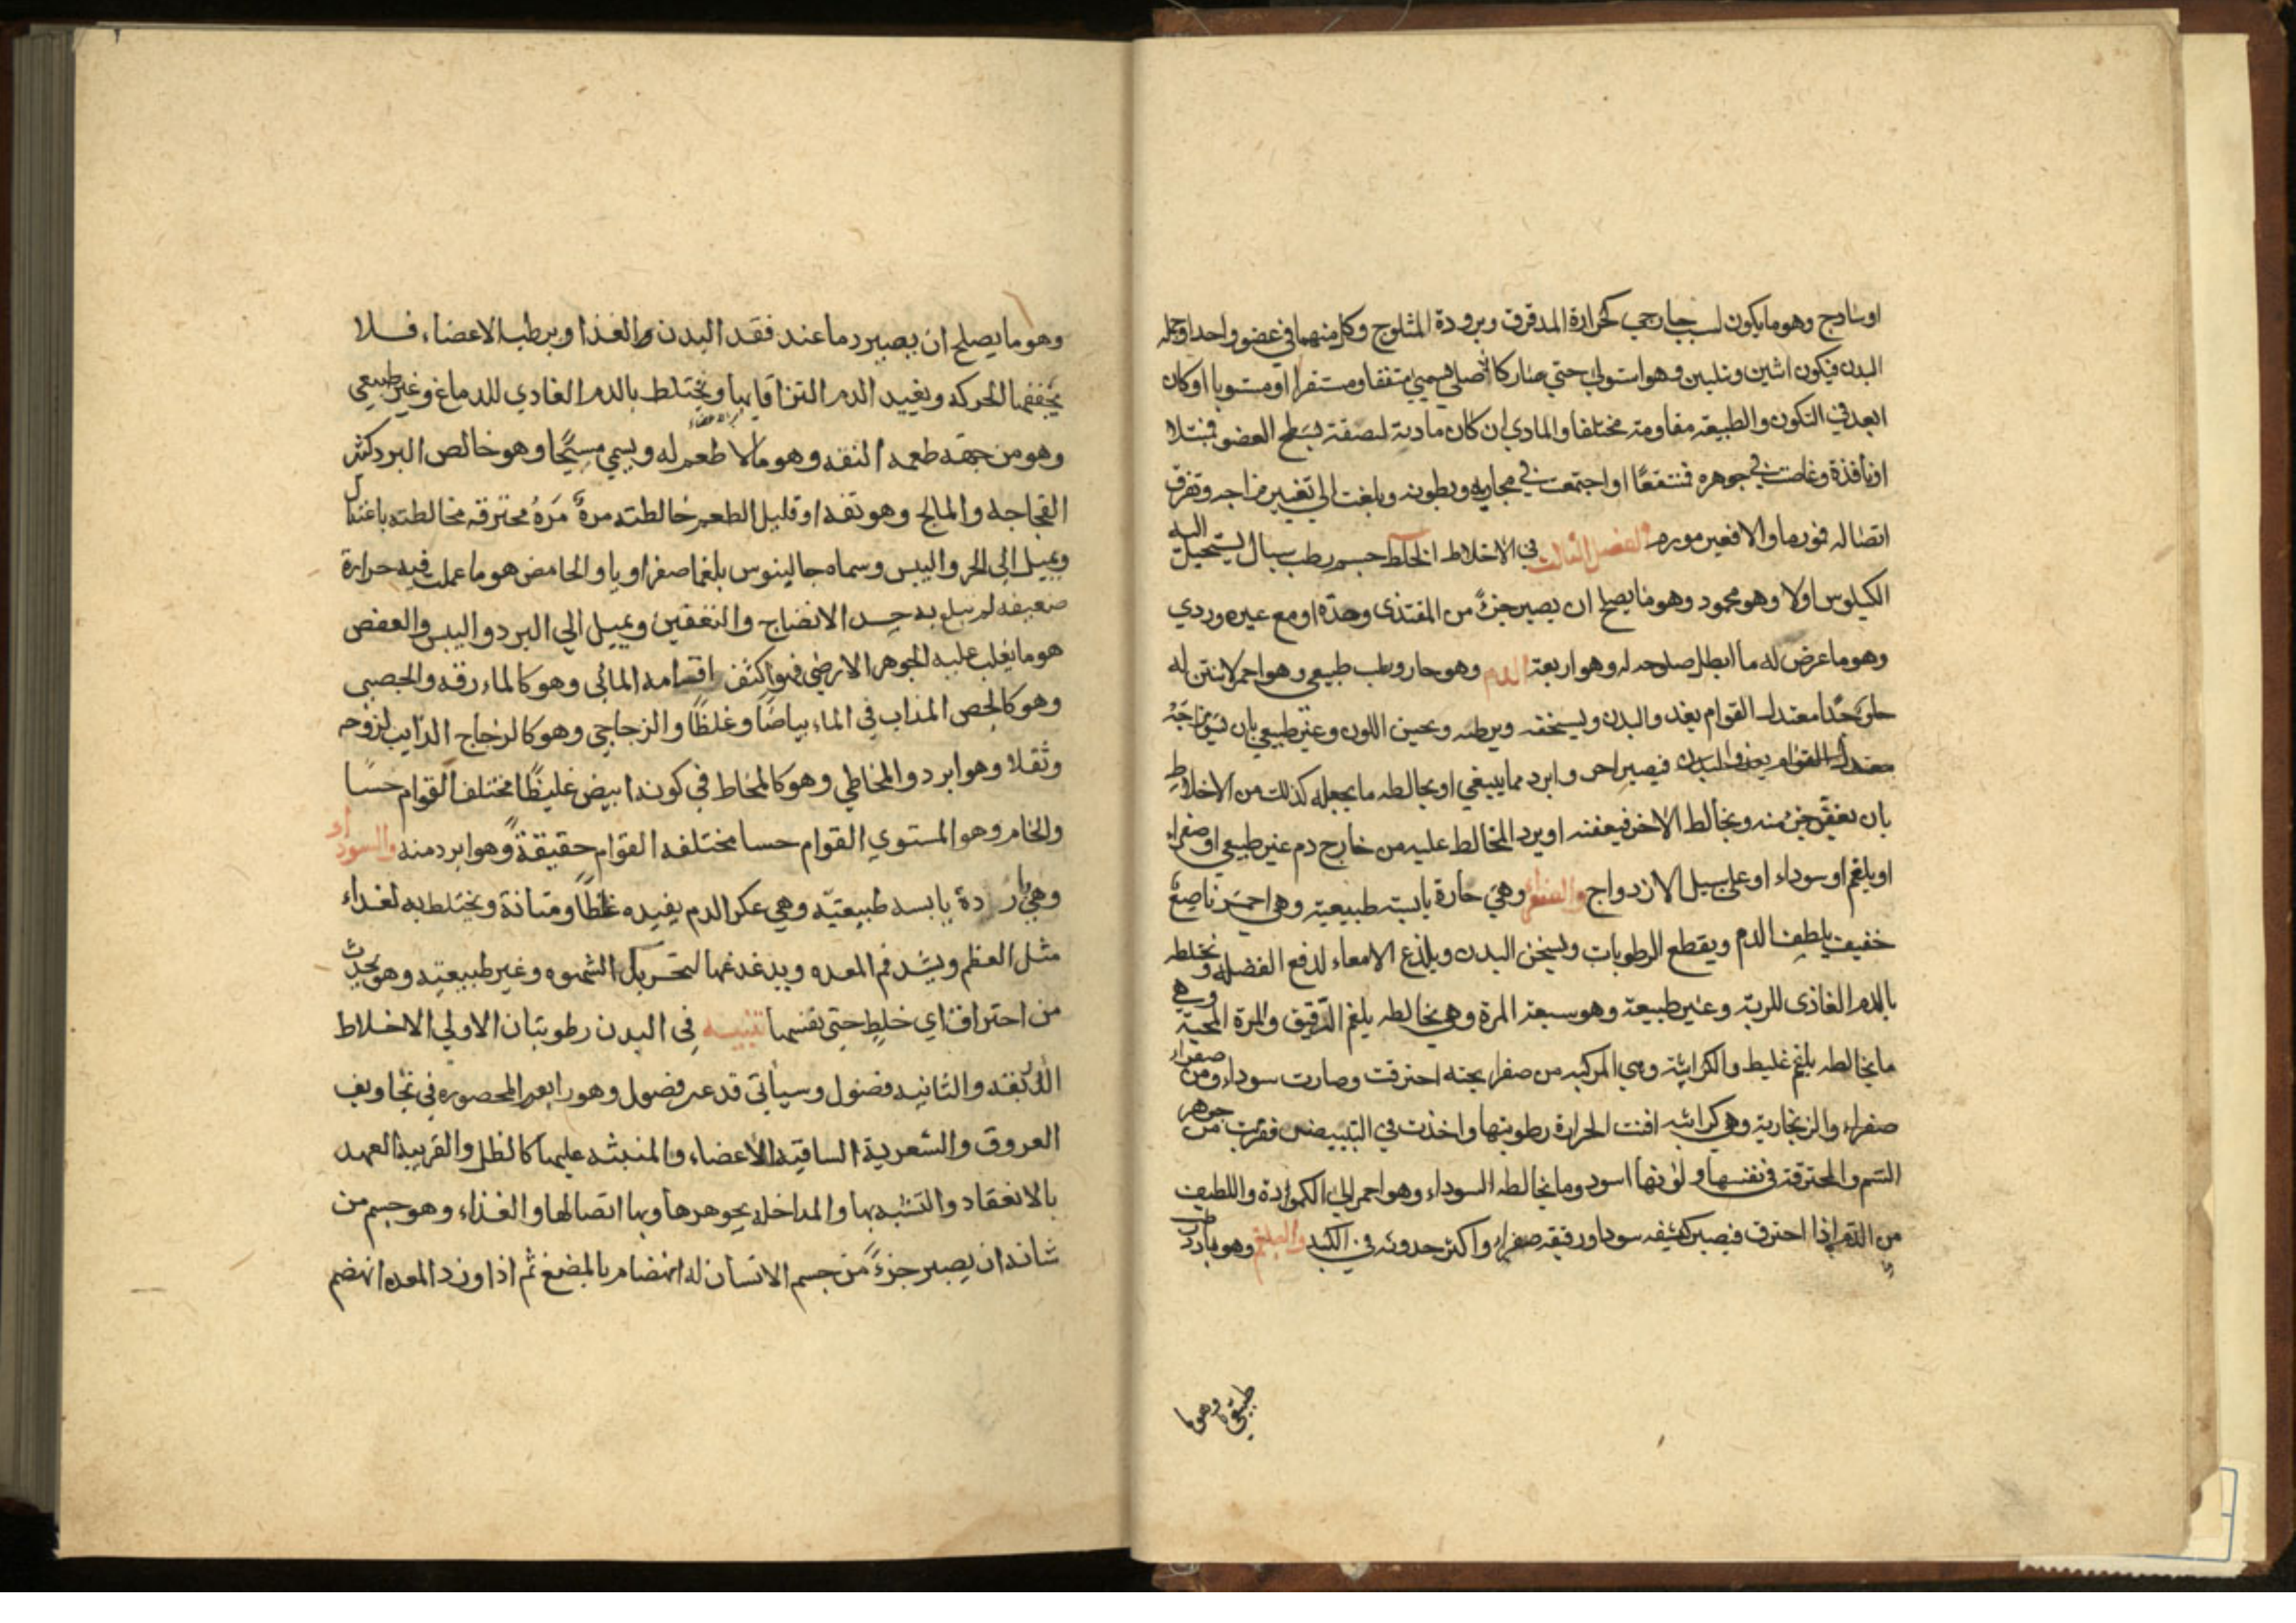 اوساذج وهو مايكون لسبب خارجي كحرارة المدقوق وبرودة المثلوج وكل منهما في عضو واحد اوجملة
البدن فيكون اثنين وثلثين وهو استولي حتي صار كالاصلي سمي متفقا ومستقرا اومستويا اوكان
ابعد في التكون والطبيعة مقاومة مختلفا والمادي ان كان مادته لصقة بسطح العضو فمبتلا
اونافذة وغاصت في جوهره فمنتقعًا او اجتمعت في مجاريه وبطونه وبلغت الي تغيير مزاجه وتفرق
اتصاله فورما والا فغير مورم والفصل الثالث في الاخلاط الخلط جسم رطب سيال يستحيل اليه
الكيلوس اولا وهو محمود وهو مايصلح ان يصير جزءً من المغتذي وحدة او مع غيره وردي
وهو ماعرض له ما ابطل صلوحه له وهو اربعة الدم وهو حار رطب طبيعي وهو احمر لا نتن له
حلو جدًا معتدل القوام يغذ والبدن ويسخنه ويرطبه ويحسن اللون وغير طبيعي بان يسوء مزاجه
معتدل القوام يغذ والبدن فيصير احر و ابرد مما ينبغي او يخالطه مايجعله كذلك من الاخلاط
بان يعفن جزء منه ويخالط الاخر فيعفنه او يرد المخالط عليه من خارج دم غير طبيعي اوصفراء
او بلغم او سوداء او علي سبيل الازدواج والصفراء وهي حارة يابسة طبيعية وهي احمر ناصع
خفيف يلطف الدم ويقطع الرطوبات ويسخن البدن ويلذع الامعاء لدفع الفضلة ويختلط
بالدم الغاذي للرية وغير طبيعة وهو سبعة المرة وهي يخالطه بلغم الرقيق والمرة المحية وهي
مايخالطه بلغم غليظ والكراثية وهي المركبه من صفرا محيه احترقت وصارت سوداء ومن صفراء
صفراء والزنجارية وهي كراثيه افنت الحرارة رطوبتها واخذت في التبييض فقربت من جوهر
السم والمحترقة في نفسها ولونها اسود ومايخالطه السوداء وهو احمر الي الكمودة واللطيف
من الدم اذا احترق فيصير كثيفه سودا ورقيقه صفراء واكثر حدوثه في الكبد والبلغم وهو بارد رطب
طبيعي وهوما
وهو ما يصلح ان يصير دما عند فقد البدن والغذا ويرطب الاعضاء فلا
يجففها الحركه ويفيد الدم التزاقا بها ويختلط بالدم الغادي للدماغ وغير طبيعي
وهو من جهة طعمه التفه وهو مالا طعم له ويسمي مسيخًا وهو خالص البرد كثير
الفجاجه والمالح وهو تفه او قليل الطعم خالطته مرةٌ مَرةُ محترقه مخالطته باعتدال
ويميل الي الحر واليبس وسماه جالينوس بلغما صفراويا والحامض هو ما عملت فيه حرارة
ضعيفه لم تبلغ به حد الانضاج والتعفين ويميل الي البرد واليبس والعفص
هو مايغلب عليه الجوهر الارضي فهو اكثف اقسامه المائي وهو كالماء رقه والجصبي
وهو كالجص المذاب في الماء بياضًا وغلظًا والزجاجي وهو كالزجاج الذايب لزوجه
وثقلا وهو ابرد والمخاطي وهو كالمخاط في كونه ابيض غليظًا مختلف القوام حسًا
والخام وهو المستوي القوام حسا مختلفه القوام حقيقةً وهو ابرد منه والسوداء
وهي باردة يابسه طبيعيّه وهي عكر الدم يفيده غلظًا ومتانة ويختلط به لغذاء
مثل العظم ويشد فم المعده ويدغدغها لتحريك الشهوه وغير طبيعيه وهو يحدث
من احتراق اي خلط حتي نفسها تنبيه في البدن رطوبتان الاولي الاخلاط
والثانيه فضول وسيأتي وغير فضول وهو رابعه المحصوره في تجاويف
العروق والشعرية الساقية للاعضاء والمنبثه عليها كالطل والقريبة العهد
بالانعقاد والتشبه بها والمداخله بجوهرها وبها اتصالها والغذاء وهو جسم من
شانه ان يصير جزءً من جسم الانسان له انهضام بالمضغ ثم اذا ورد المعده انهضم